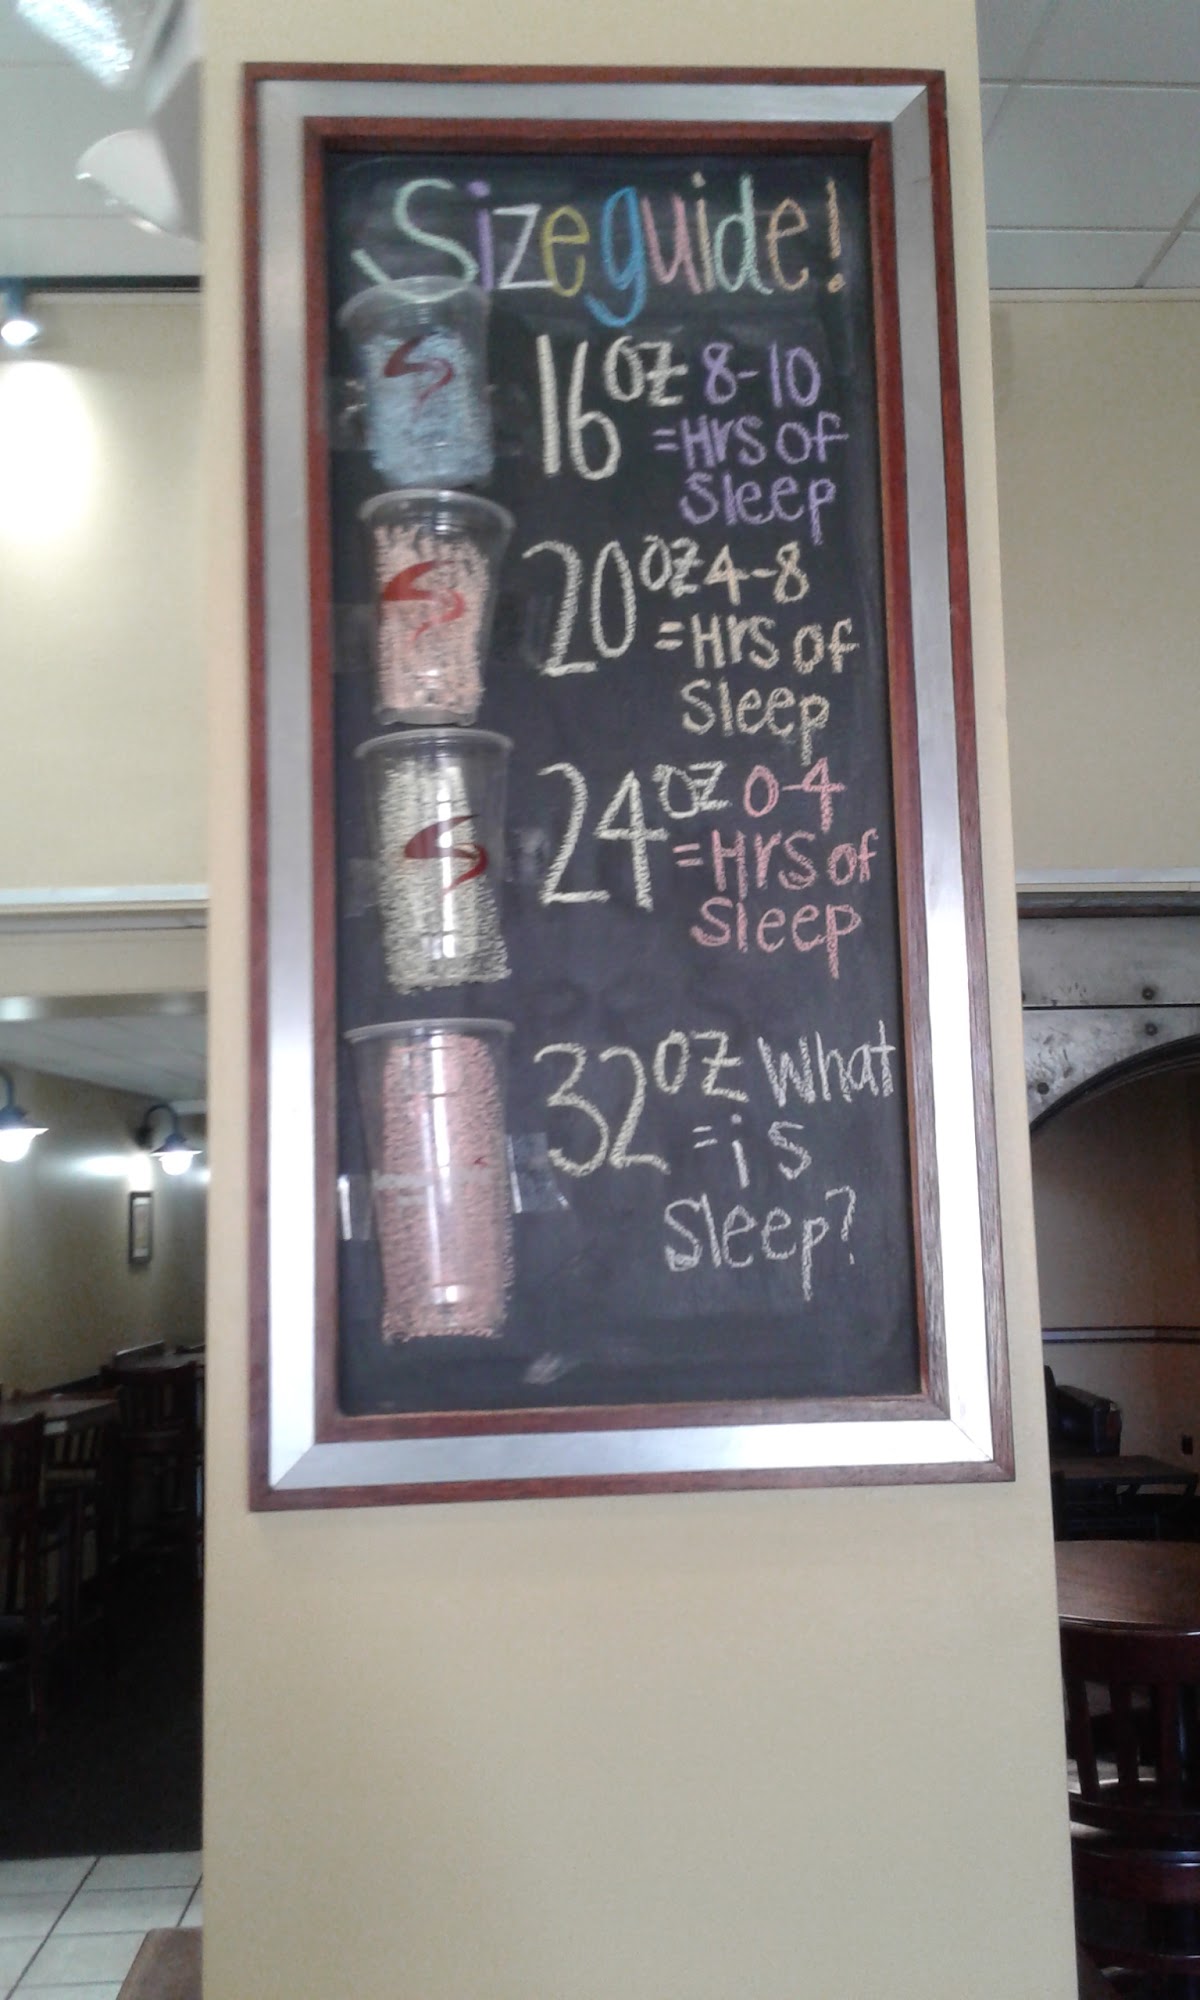 Size guide!
16 oz 8-10
= Hrs of
Sleep
20 oz 4-8
= Hrs of
Sleep
24 oz 0-4
= Hrs of
Sleep
32 oz What
= is
Sleep?